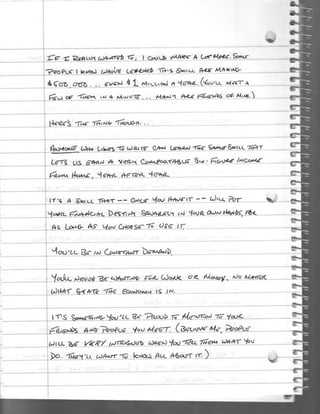 IF I REALLY WANTED TO, I COULD MAKE A LOT MORE. SOME
PEOPLE I KNOW WHO'VE LEARNED THIS SKILL ARE MAKING
$500,000 ... EVEN $1 MILLION A YEAR. (YOU'LL MEET A
FEW OF THEM IN A MINUTE... MANY ARE FRIENDS OF MINE.)
HERE'S THE THING THOUGH...
ANYONE WHO LIKES TO WRITE CAN LEARN THE SAME SKILL THAT
LETS US EARN A VERY COMFORTABLE SIX-FIGURE INCOME
FROM HOME, YEAR AFTER YEAR.
IT'S A SKILL THAT -- ONCE YOU HAVE IT -- WILL PUT
YOUR FINANCIAL DESTINY SQUARELY IN YOUR OWN HANDS, FOR
AS LONG AS YOU CHOOSE TO USE IT.
YOU'LL BE IN CONSTANT DEMAND.
YOU'LL NEVER BE WANTING FOR WORK OR MONEY, NO MATTER
WHAT STATE THE ECONOMY IS IN.
IT'S SOMETHING YOU'LL BE PROUD TO MENTION TO YOUR
FRIENDS AND PEOPLE YOU MEET. (BELIEVE ME, PEOPLE
WILL BE VERY INTRIGUED WHEN YOU TELL THEM WHAT YOU
DO. THEY'LL WANT TO KNOW ALL ABOUT IT.)